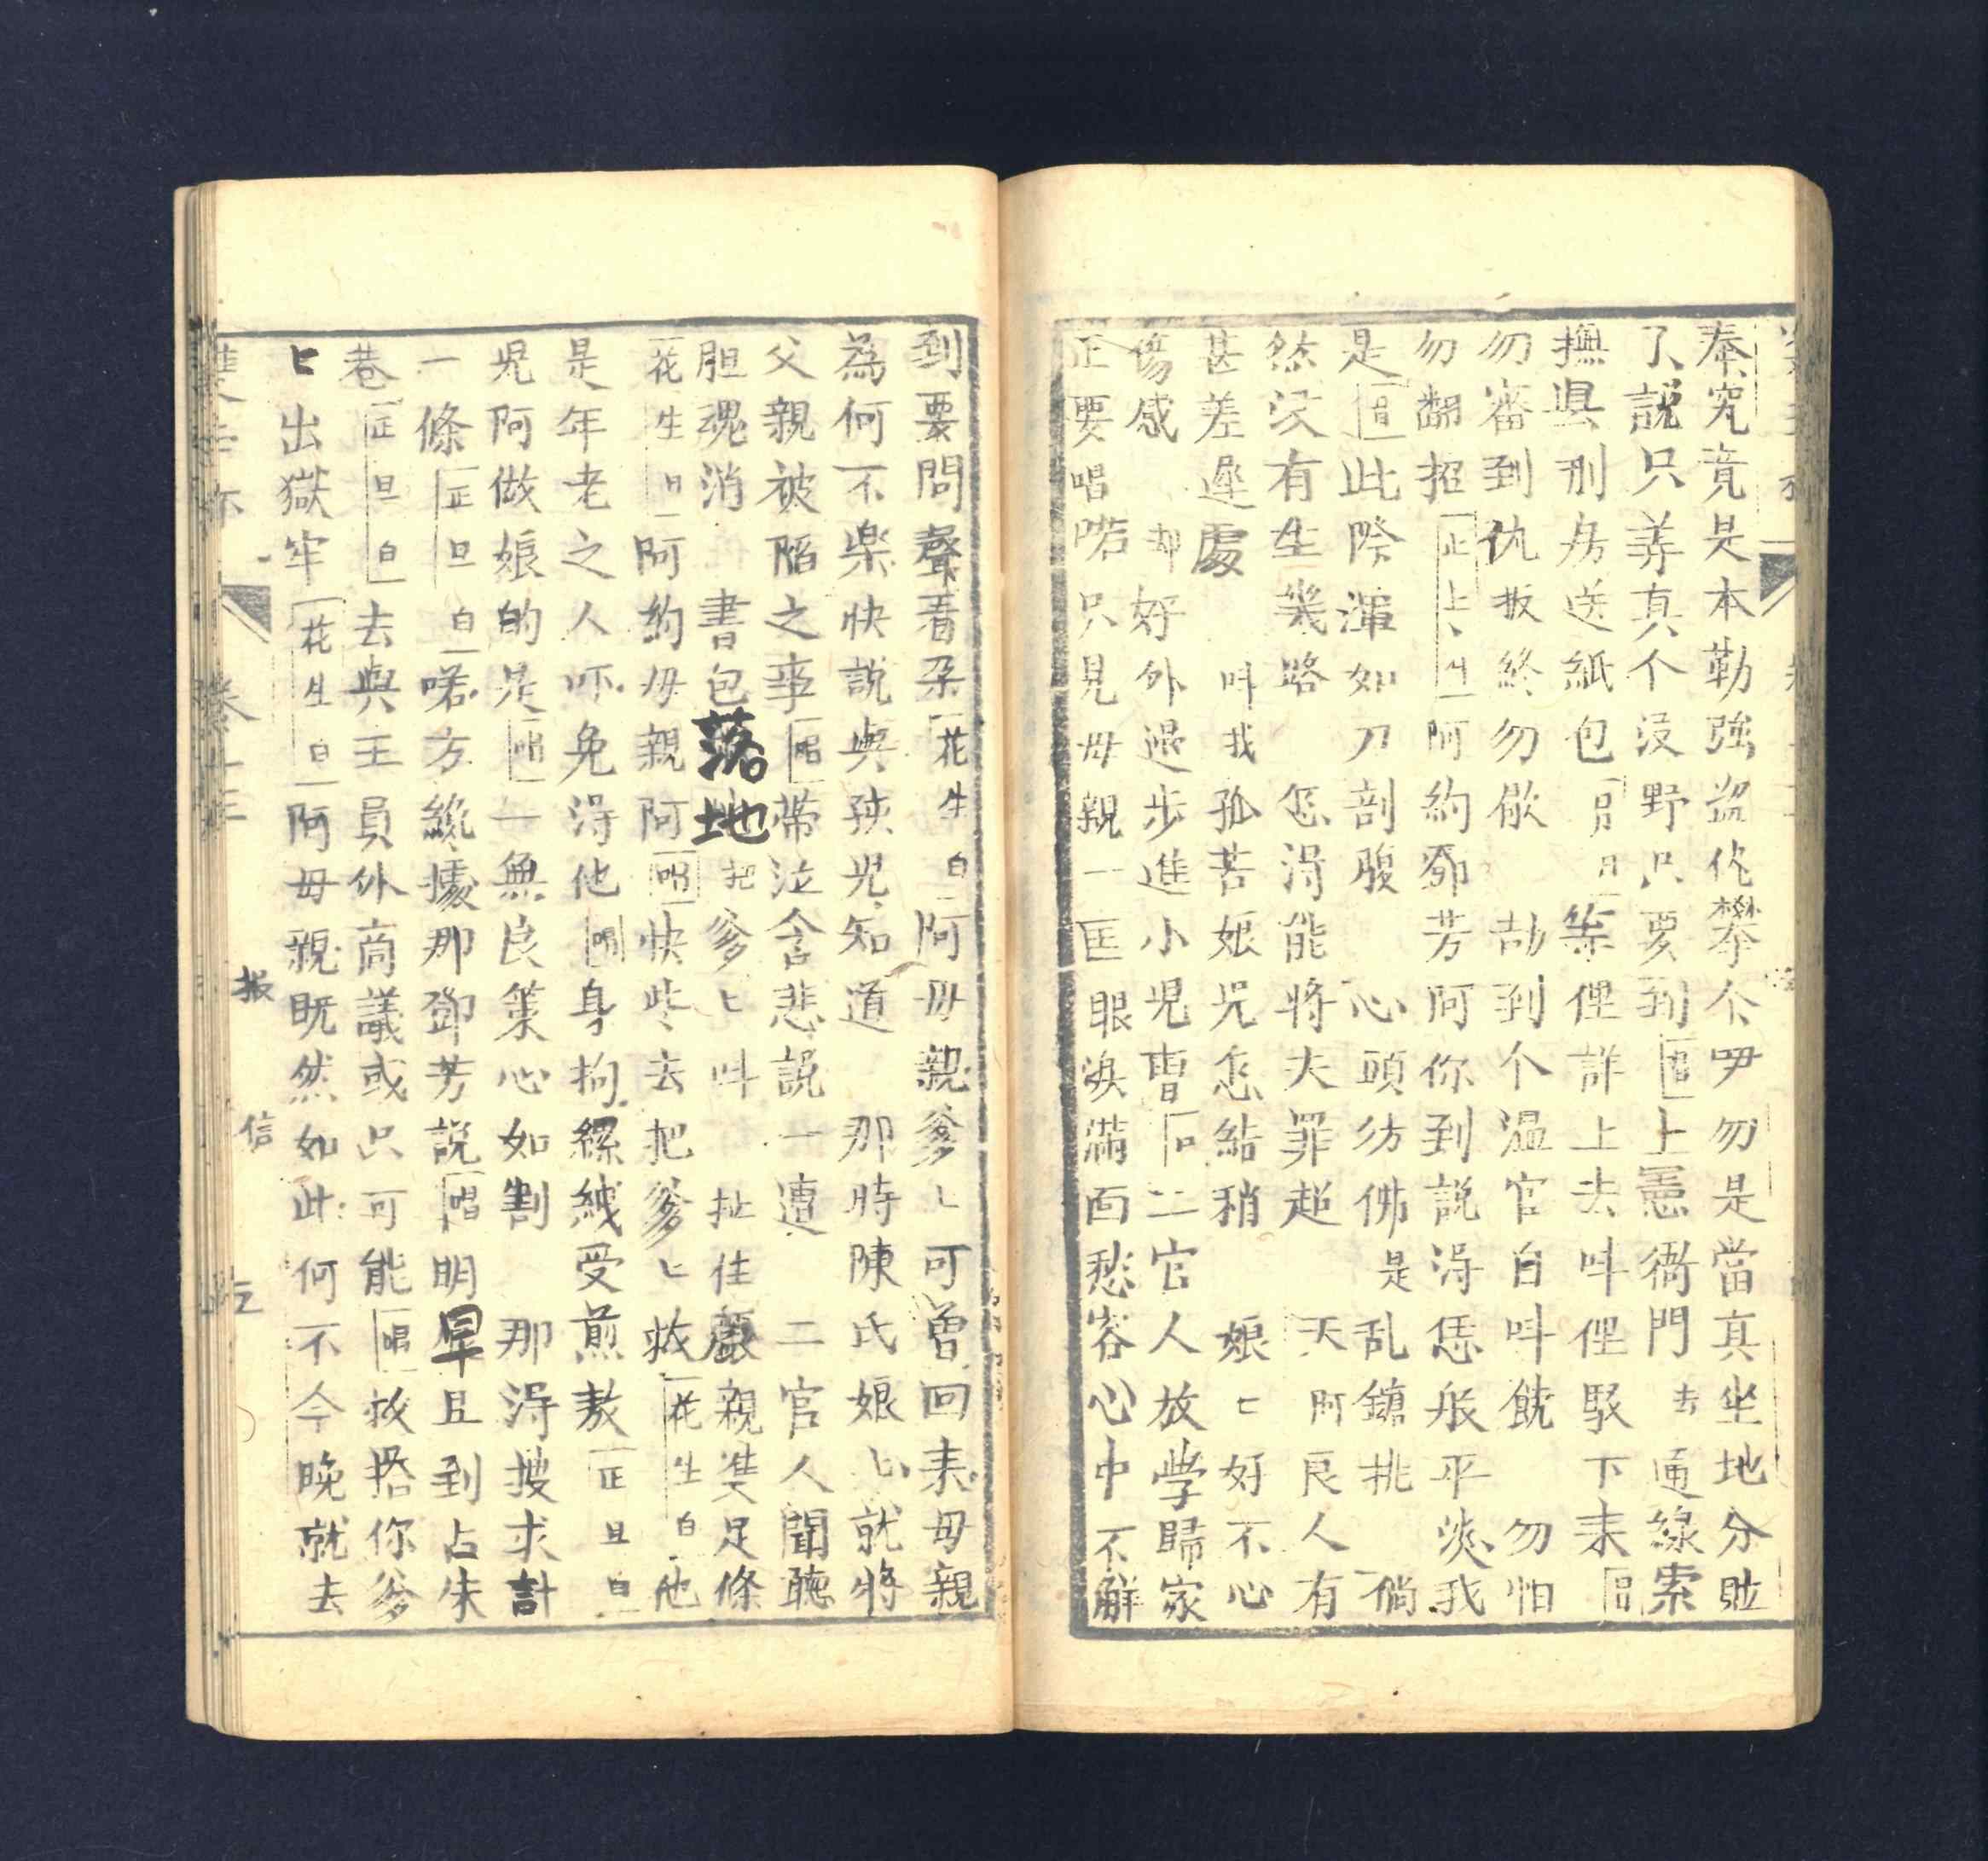 奉究竟是本勒強盜仛攀个㕥勿是當真坐地分賍
了說只筭真个没野只要到唱上憲衙門去通線索
撫㬎刑房送紙包白筞俚詳上去呌俚駁下来唱
勿審到仇扳終勿做刼到个温官自呌饒勿怕
勿翻招正上生阿約鄧芳阿你到説淂恁般平淡我
是唱此際渾如刀剖腹心頭彷佛是乱鎗挑倘
然没有生幾路怎淂能将夫罪超天阿良人有
甚差遲處呌我孤苦娘児怎結稍娘匕好不心
傷感却好外邊步進小児曹白二官人放學歸家
正要唱喏只見毋親一匡眼淚滿面愁容心中不解
到要問聲看朶花生白阿毋親爹匕可曽回来毋親
為何不樂快説與孩児知道那時陳氏娘匕就将
父親被陷之事唱帶泣含悲説一遭二官人聞聽
胆魂消書包落地把爹匕呌扯住嚴親雙足條
花生白阿約毋親阿唱快些去把爹匕救花生白他
是年老之人吥免淂他唱身拘縲絏受煎熬正旦白
児阿做娘的是唱一無良策心如割那淂搜求計
一條正旦白喏方纔據那鄧芳説唱明早且到占朱
巷正旦白去與王員外商議或只可能唱救搭你爹
匕出獄牢花生白阿毋親既然如此何不今晚就去
卷十三
报信